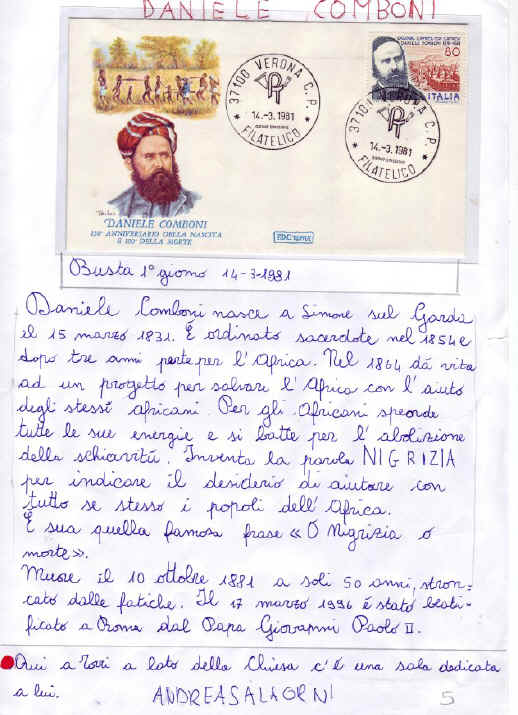 DANIELE COMBONI
37100 VERONA C.P.
14.-3.1981
FILATELICO
DANIELE COMBONI 1831-1881
80
ITALIA
37100 VERONA C.P.
14.-3.1981
FILATELICO
DANIELE COMBONI
150° ANNIVERSARIO DELLA NASCITA
E 100° DELLA MORTE
Busta 1° giorno 14-3-1981
Daniele Comboni nasce a Limone sul Garda
il 15 marzo 1831. È ordinato sacerdote nel 1854 e
dopo tre anni parte per l'Africa. Nel 1864 dà vita
ad un progetto per salvare l'Africa con l'aiuto
degli stessi africani. Per gli Africani spende
tutte le sue energie e si batte per l'abolizione
della schiavitù. Inventa la parola NIGRIZIA
per indicare il desiderio di aiutare con
tutto se stesso i popoli dell'Africa.
È sua quella famosa frase «O Nigrizia o
morte».
Muore il 10 ottobre 1881 a soli 50 anni, stron-
cato dalle fatiche. Il 17 marzo 1996 è stato beati-
ficato a Roma dal Papa Giovanni Paolo II.
Qui a Torri a lato della Chiesa c'è una sala dedicata
a lui.
ANDREA SALAORNI
5